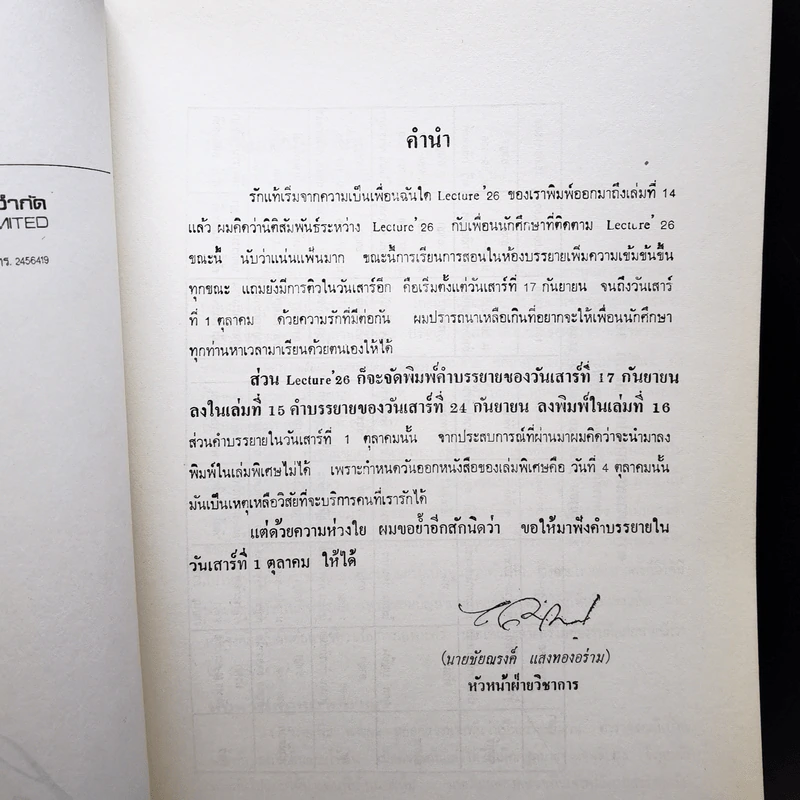 จำกัด
MITED
โทร. 2456419
คำนำ
รักแท้เริ่มจากความเป็นเพื่อนฉันใด Lecture'26 ของเราพิมพ์ออกมาถึงเล่มที่ 14
แล้ว ผมคิดว่านิติสัมพันธ์ระหว่าง Lecture'26 กับเพื่อนนักศึกษาที่ติดตาม Lecture'26
ขณะนี้ นับว่าแน่นแฟ้นมาก ขณะนี้การเรียนการสอนในห้องบรรยายเพิ่มความเข้มข้นขึ้น
ทุกขณะ แถมยังมีการติวในวันเสาร์อีก คือเริ่มตั้งแต่วันเสาร์ที่ 17 กันยายน จนถึงวันเสาร์
ที่ 1 ตุลาคม ด้วยความรักที่มีต่อกัน ผมปรารถนาเหลือเกินที่อยากจะให้เพื่อนนักศึกษา
ทุกท่านหาเวลามาเรียนด้วยตนเองให้ได้
ส่วน Lecture'26 ก็จะจัดพิมพ์คำบรรยายของวันเสาร์ที่ 17 กันยายน
ลงในเล่มที่ 15 คำบรรยายของวันเสาร์ที่ 24 กันยายน ลงพิมพ์ในเล่มที่ 16
ส่วนคำบรรยายในวันเสาร์ที่ 1 ตุลาคมนั้น จากประสบการณ์ที่ผ่านมาผมคิดว่าจะนำมาลง
พิมพ์ในเล่มพิเศษไม่ได้ เพราะกำหนดวันออกหนังสือของเล่มพิเศษคือ วันที่ 4 ตุลาคมนั้น
มันเป็นเหตุเหลือวิสัยที่จะบริการคนที่เรารักได้
แต่ด้วยความห่วงใย ผมขอย้ำอีกสักนิดว่า ขอให้มาฟังคำบรรยายใน
วันเสาร์ที่ 1 ตุลาคม ให้ได้
(นายชัยณรงค์ แสงทองอร่าม)
หัวหน้าฝ่ายวิชาการ